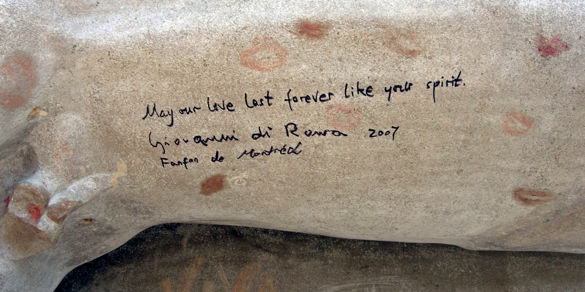 May our love last forever like your spirit.
Giovanni di Roma 2007
Fanfan de Montréal